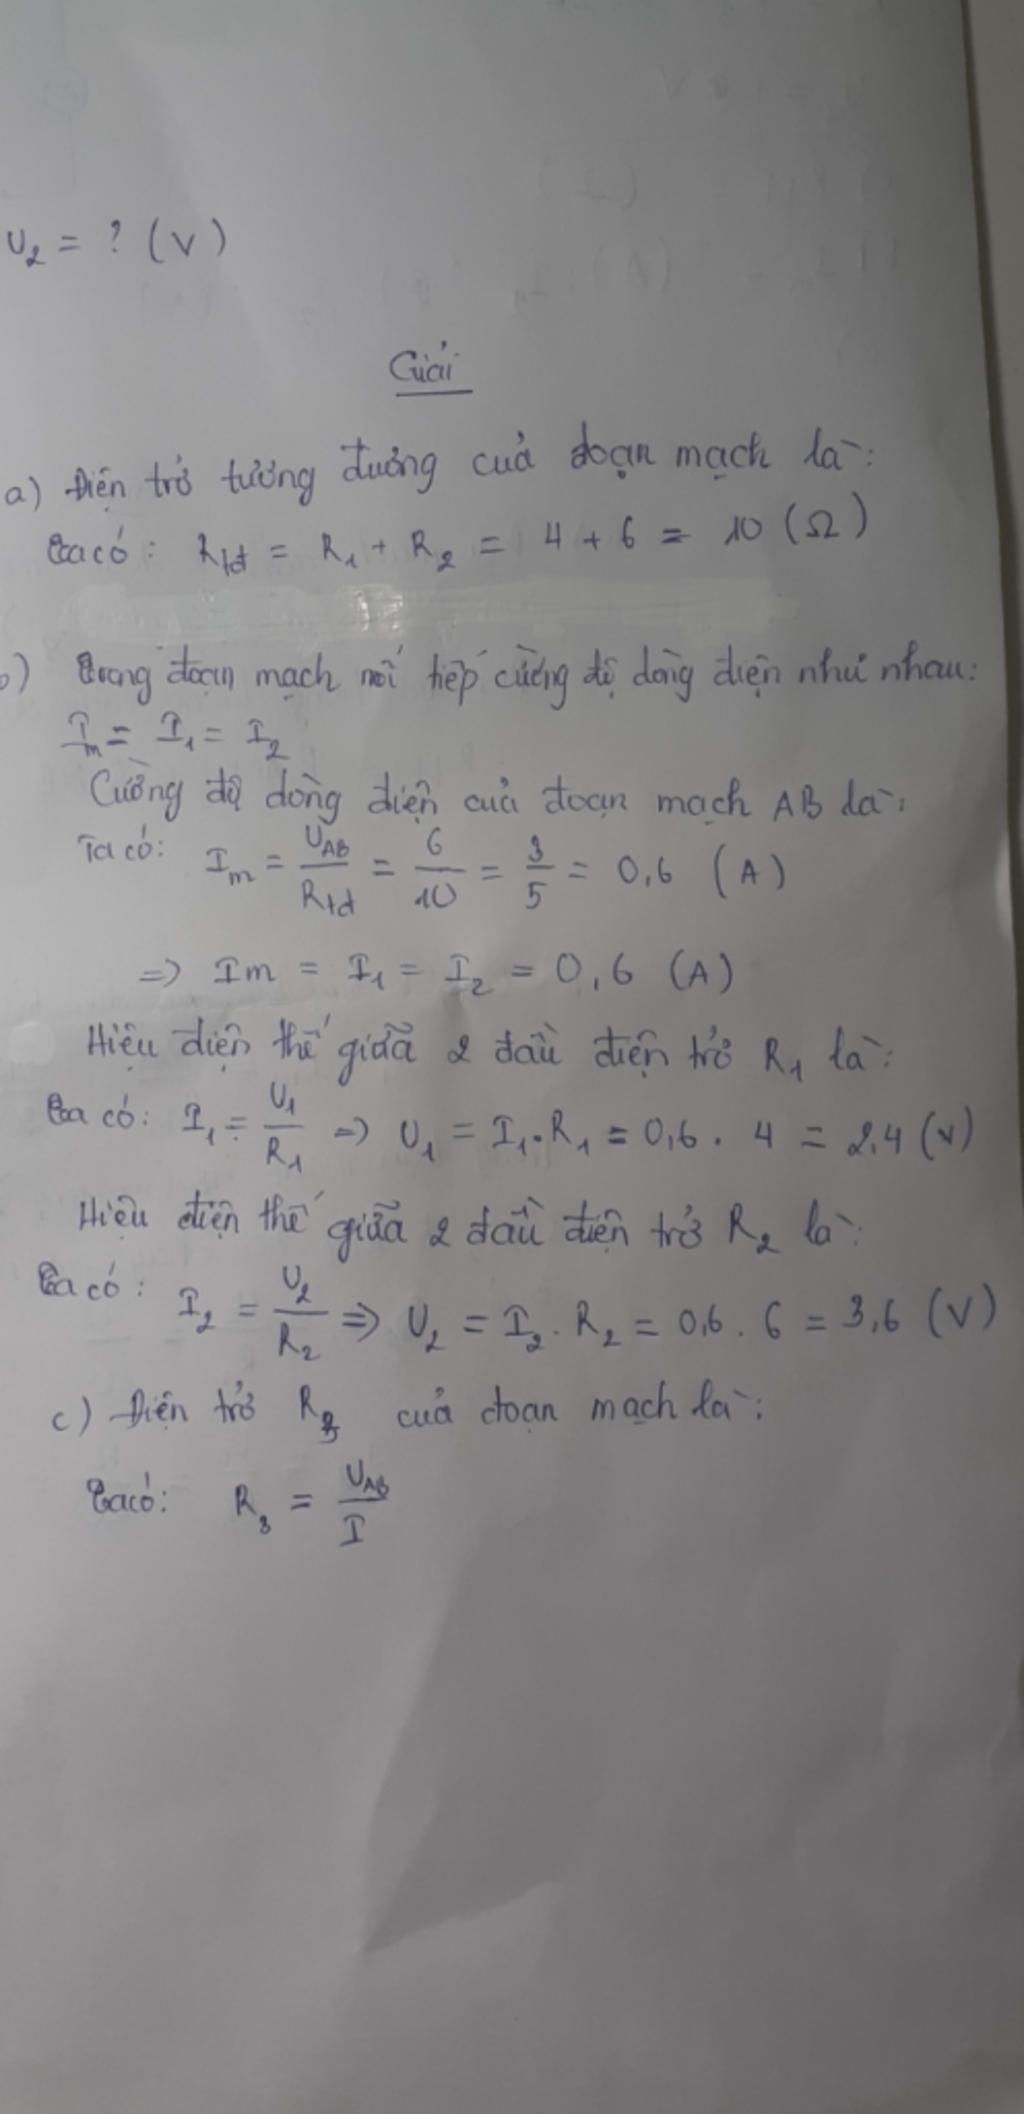 U₂ = ? (V)
Giải
a) Điện trở tương đương của đoạn mạch là:
Ta có: Rtđ = R₁ + R₂ = 4 + 6 = 10 (Ω)
b) Trong đoạn mạch nối tiếp cường độ dòng điện như nhau:
Iₘ = I₁ = I₂
Cường độ dòng điện của đoạn mạch AB là:
Ta có: Iₘ = U_AB/Rtđ = 6/10 = 3/5 = 0,6 (A)
=> Im = I₁ = I₂ = 0,6 (A)
Hiệu điện thế giữa 2 đầu điện trở R₁ là:
Ta có: I₁ = U₁/R₁ => U₁ = I₁.R₁ = 0,6 . 4 = 2,4 (V)
Hiệu điện thế giữa 2 đầu điện trở R₂ là:
Ta có: I₂ = U₂/R₂ => U₂ = I₂ . R₂ = 0,6 . 6 = 3,6 (V)
c) Điện trở R₃ của đoạn mạch là:
Ta có: R₃ = U_AB/I